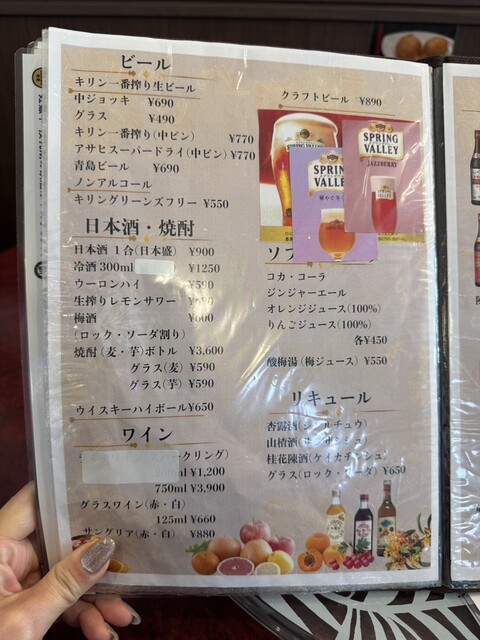 ビール
キリン一番搾り生ビール
中ジョッキ ¥690
グラス ¥490
キリン一番搾り(中ビン) ¥770
アサヒスーパードライ(中ビン) ¥770
青島ビール ¥690
ノンアルコール
キリングリーンズフリー ¥550
日本酒・焼酎
日本酒 1合(日本盛) ¥900
冷酒 300ml ¥1250
ウーロンハイ ¥590
生搾りレモンサワー
梅酒 ¥600
(ロック・ソーダ割り)
焼酎(麦・芋)ボトル ¥3,600
グラス(麦) ¥590
グラス(芋) ¥590
ウイスキーハイボール ¥650
ワイン
ークリング)
ml ¥1,200
750ml ¥3,900
グラスワイン(赤・白)
125ml ¥660
サングリア(赤・白) ¥880
クラフトビール ¥890
SPRING
VALLEY
JAZZBERRY
SPRING
VALLEY
ソフ
コカ・コーラ
ジンジャーエール
オレンジジュース(100%)
りんごジュース(100%)
各¥450
酸梅湯(梅ジュース) ¥550
リキュール
杏露酒(シンルチュウ)
山楂酒(サンザシシュ)
桂花陳酒(ケイカチンシュ)
グラス(ロック・ソーダ) ¥650